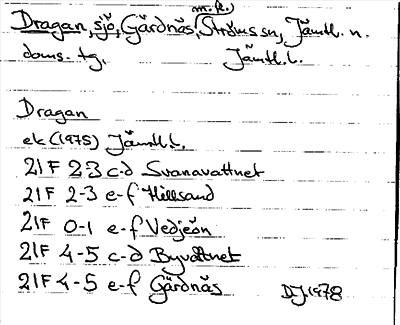 (m.fl.)
Dragan, sjö, Gärdnäs, Ströms sn, Jämtl. n.
doms. tg. Jämtl. l.
Dragan
ek (1975) Jämtl. l.
21F 2-3 c-d Svanavattnet
21F 2-3 e-f Hillsand
21F 0-1 e-f Vedjeön
21F 4-5 c-d Byvattnet
21F 4-5 e-f Gärdnäs DJ. 1978